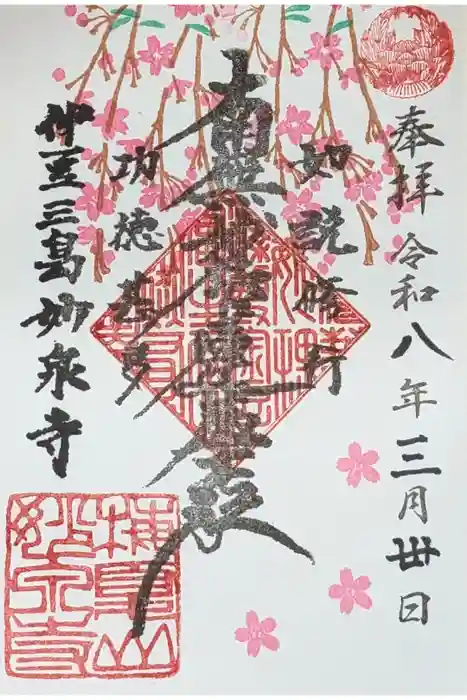 奉拝 令和八年三月卅日
如説修行
南無妙法蓮華経
功徳甚多
伊豆三島妙泉寺